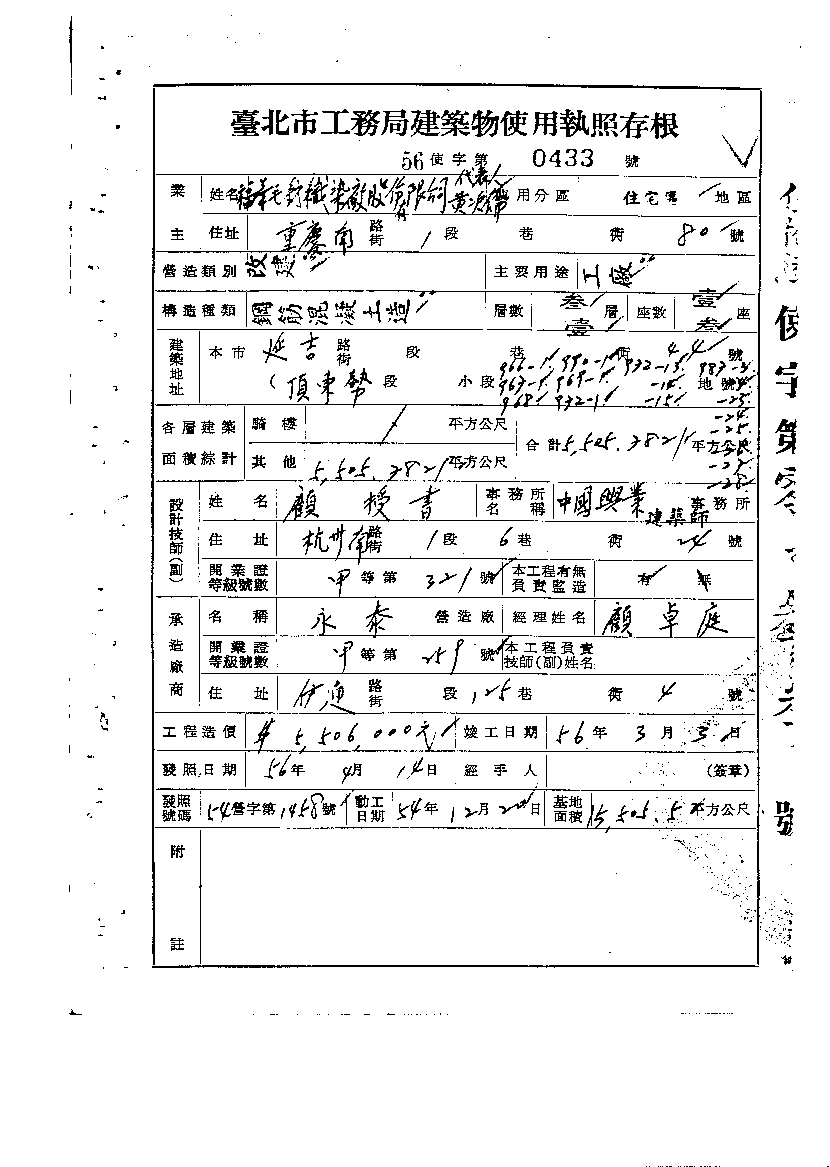 臺北市工務局建築物使用執照存根
56使字第 0433 號
業主 姓名 毛紡織染廠股份有限公司 代表人 使用分區 住宅區 地區
住址 重慶南 路街 1 段 巷 衖 80 號
營造類別 改建 主要用途 工廠
構造種類 鋼筋混凝土造 層數 叁壹 層 座數 壹叁 座
建築地址 本市 延吉 路街 段 巷 衖 44 號
頂東勢 段 小段 地號
966-1 990-1 932-13 983-3
963-1 969-1 -14
968 932-1 -15 -23
-24
-25
-28
各層建築面積綜計 騎樓 / 平方公尺 合計 5,505.382 平方公尺
其他 5,505.382 平方公尺
設計技師(副) 姓名 顧授書 事務所名稱 中國興業建築師 事務所
住址 杭州南 路街 1 段 6 巷 衖 24 號
開業證等級號數 甲 等第 321 號 本工程有無負責監造 有 無
承造廠商 名稱 永泰 營造廠 經理姓名 顧卓庭
開業證等級號數 甲 等第 259 號 本工程負責技師(副)姓名
住址 伊通 路街 段 125 巷 衖 4 號
工程造價 $5,506,000元 竣工日期 56年3月3日
發照日期 56年4月14日 經手人 (簽章)
發照號碼 54營字第1458號 動工日期 54年12月20日 基地面積 15,505.5 平方公尺
附註
使字第
號